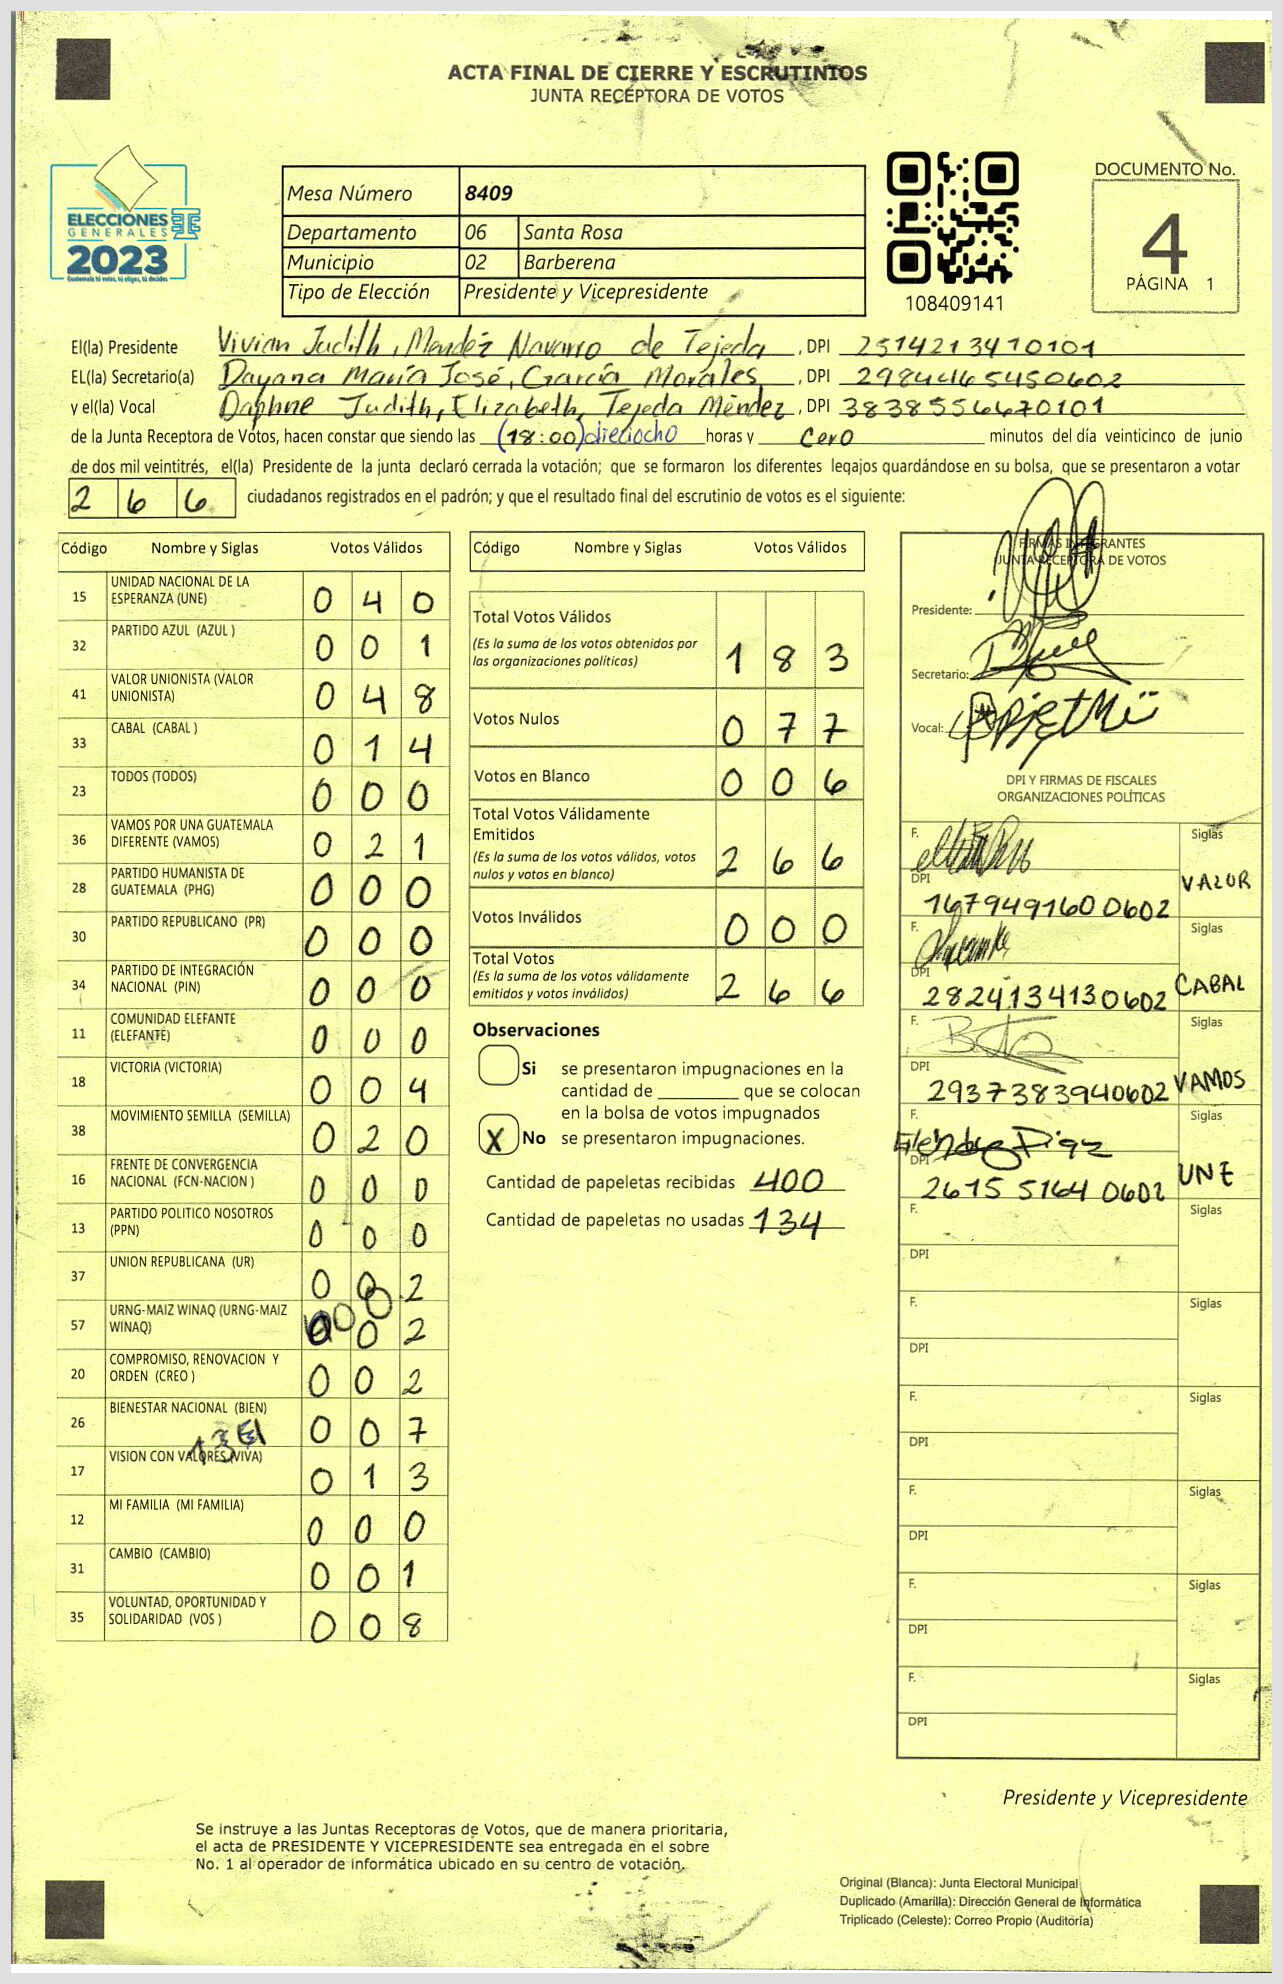 ACTA FINAL DE CIERRE Y ESCRUTINIOS
JUNTA RECEPTORA DE VOTOS
ELECCIONES
GENERALES
2023
Guatemala tú votas, tú eliges, tú decides
Mesa Número 8409
Departamento 06 Santa Rosa
Municipio 02 Barberena
Tipo de Elección Presidente y Vicepresidente
108409141
DOCUMENTO No.
4
PÁGINA 1
El(la) Presidente Vivian Judith, Mendéz Navarro de Tejeda, DPI 2514213410101
EL(la) Secretario(a) Dayana María José, García Morales, DPI 2984465450602
y el(la) Vocal Daphne Judith, Elizabeth, Tejeda Méndez, DPI 3838556670101
de la Junta Receptora de Votos, hacen constar que siendo las (18:00) dieciocho horas y cero minutos del día veinticinco de junio
de dos mil veintitrés, el(la) Presidente de la junta declaró cerrada la votación; que se formaron los diferentes legajos guardándose en su bolsa, que se presentaron a votar
266 ciudadanos registrados en el padrón; y que el resultado final del escrutinio de votos es el siguiente:
Código Nombre y Siglas Votos Válidos
15 UNIDAD NACIONAL DE LA ESPERANZA (UNE) 0 4 0
32 PARTIDO AZUL (AZUL ) 0 0 1
41 VALOR UNIONISTA (VALOR UNIONISTA) 0 4 8
33 CABAL (CABAL ) 0 1 4
23 TODOS (TODOS) 0 0 0
36 VAMOS POR UNA GUATEMALA DIFERENTE (VAMOS) 0 2 1
28 PARTIDO HUMANISTA DE GUATEMALA (PHG) 0 0 0
30 PARTIDO REPUBLICANO (PR) 0 0 0
34 PARTIDO DE INTEGRACIÓN NACIONAL (PIN) 0 0 0
11 COMUNIDAD ELEFANTE (ELEFANTE) 0 0 0
18 VICTORIA (VICTORIA) 0 0 4
38 MOVIMIENTO SEMILLA (SEMILLA) 0 2 0
16 FRENTE DE CONVERGENCIA NACIONAL (FCN-NACION ) 0 0 0
13 PARTIDO POLITICO NOSOTROS (PPN) 0 0 0
37 UNION REPUBLICANA (UR) 0 0 2
57 URNG-MAIZ WINAQ (URNG-MAIZ WINAQ) 0 0 2
20 COMPROMISO, RENOVACION Y ORDEN (CREO ) 0 0 2
26 BIENESTAR NACIONAL (BIEN) 0 0 7
17 VISION CON VALORES (VIVA) 0 1 3
12 MI FAMILIA (MI FAMILIA) 0 0 0
31 CAMBIO (CAMBIO) 0 0 1
35 VOLUNTAD, OPORTUNIDAD Y SOLIDARIDAD (VOS ) 0 0 8
Código Nombre y Siglas Votos Válidos
Total Votos Válidos 1 8 3
(Es la suma de los votos obtenidos por las organizaciones políticas)
Votos Nulos 0 7 7
Votos en Blanco 0 0 6
Total Votos Válidamente Emitidos 2 6 6
(Es la suma de los votos válidos, votos nulos y votos en blanco)
Votos Inválidos 0 0 0
Total Votos 2 6 6
(Es la suma de los votos válidamente emitidos y votos inválidos)
Observaciones
Si se presentaron impugnaciones en la
cantidad de ________ que se colocan
en la bolsa de votos impugnados
X No se presentaron impugnaciones.
Cantidad de papeletas recibidas 400
Cantidad de papeletas no usadas 134
FIRMAS INTEGRANTES
JUNTA RECEPTORA DE VOTOS
Presidente:
Secretario:
Vocal:
DPI Y FIRMAS DE FISCALES
ORGANIZACIONES POLÍTICAS
F. Siglas
DPI 1679491600602 VALOR
F. Siglas
DPI 2824134130602 CABAL
F. Siglas
DPI 2937383940602 VAMOS
F. Siglas
DPI 2615 5164 0602 UNE
F. Siglas
DPI
F. Siglas
DPI
F. Siglas
DPI
F. Siglas
DPI
F. Siglas
DPI
F. Siglas
DPI
Presidente y Vicepresidente
Se instruye a las Juntas Receptoras de Votos, que de manera prioritaria,
el acta de PRESIDENTE Y VICEPRESIDENTE sea entregada en el sobre
No. 1 al operador de informática ubicado en su centro de votación.
Original (Blanca): Junta Electoral Municipal
Duplicado (Amarilla): Dirección General de Informática
Triplicado (Celeste): Correo Propio (Auditoría)